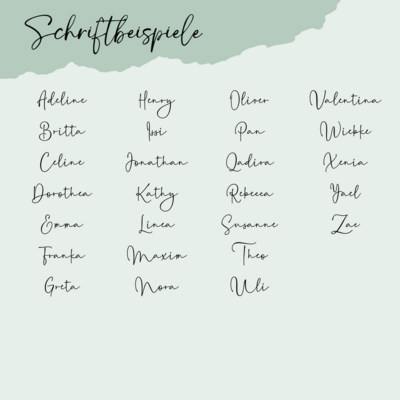 Schriftbeispiele
Adeline Henry Oliver Valentina
Britta Issi Pan Wiebke
Celine Jonathan Qadira Xenia
Dorothea Kathy Rebecca Yael
Emma Linea Susanne Zae
Franka Maxim Theo
Greta Nora Uli